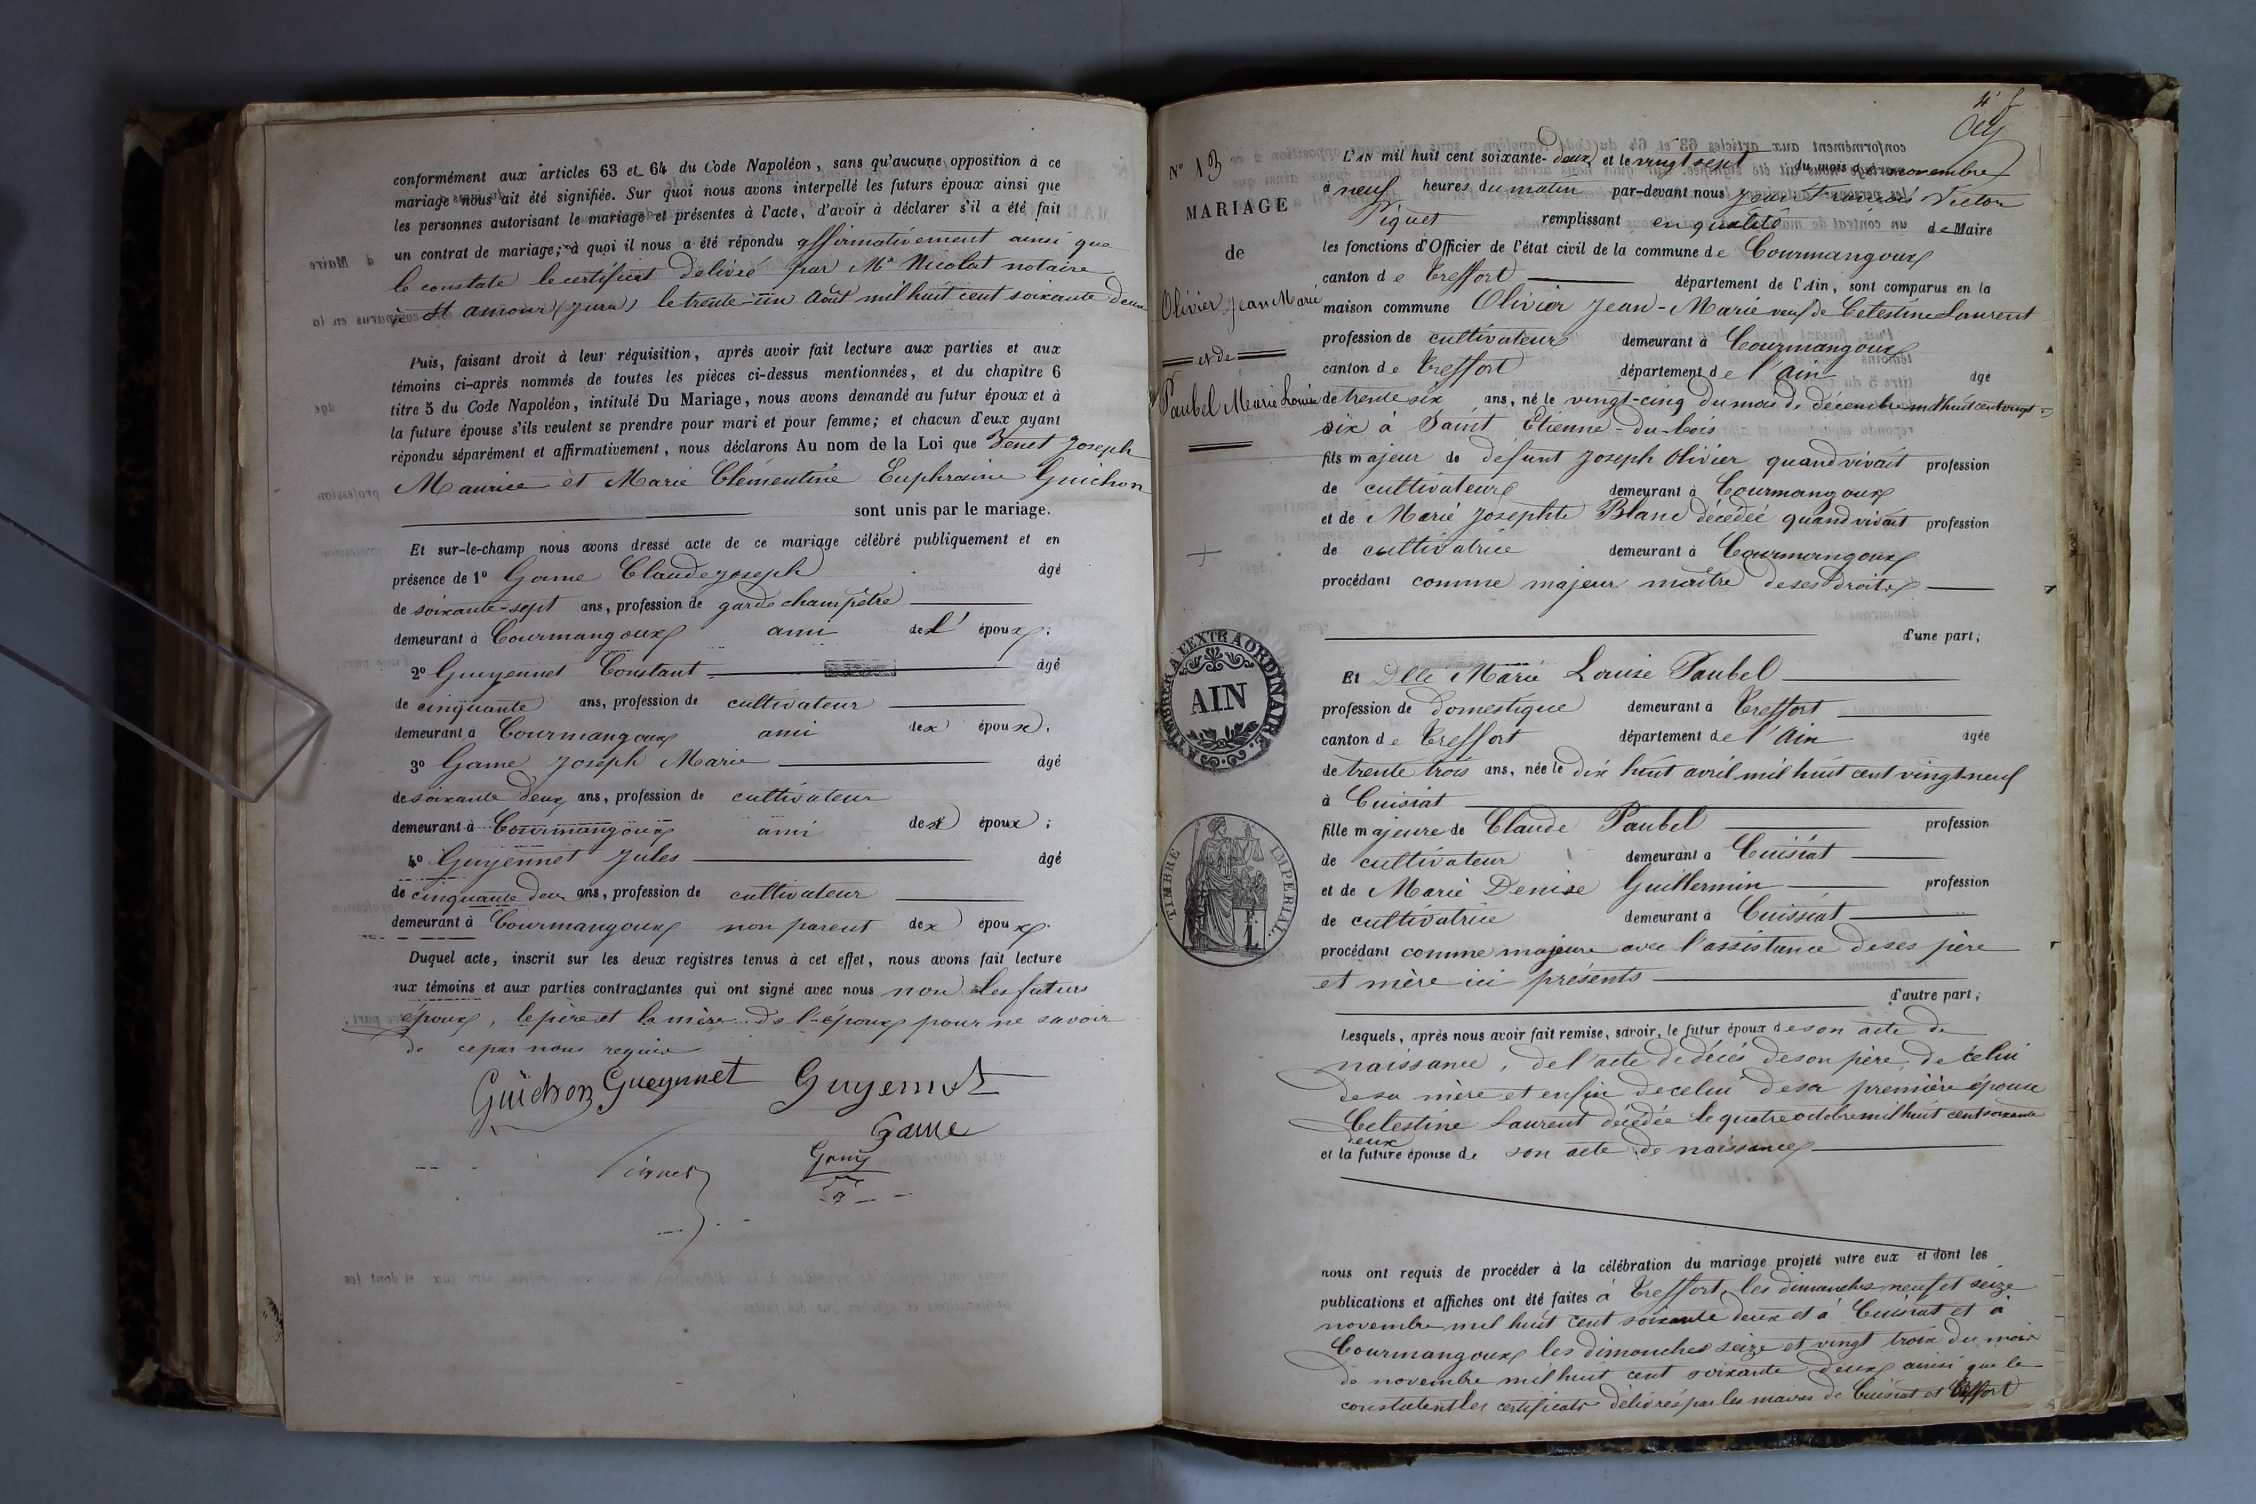 conformément aux articles 63 et 64 du Code Napoléon, sans qu'aucune opposition à ce
mariage nous ait été signifiée. Sur quoi nous avons interpellé les futurs époux ainsi que
les personnes autorisant le mariage et présentes à l'acte, d'avoir à déclarer s'il a été fait
un contrat de mariage; à quoi il nous a été répondu affirmativement ainsi que
le constate le certificat délivré par Me Nicolat notaire
à St amour (Jura) le trente-un Août mil huit cent soixante deux
Puis, faisant droit à leur réquisition, après avoir fait lecture aux parties et aux
témoins ci-après nommés de toutes les pièces ci-dessus mentionnées, et du chapitre 6
titre 5 du Code Napoléon, intitulé Du Mariage, nous avons demandé au futur époux et à
la future épouse s'ils veulent se prendre pour mari et pour femme; et chacun d'eux ayant
répondu séparément et affirmativement, nous déclarons Au nom de la Loi que Venet Joseph
Maurice et Marie Clémentine Euphrasine Guichon
sont unis par le mariage.
Et sur-le-champ nous avons dressé acte de ce mariage célébré publiquement et en
présence de 1o Game Claude Joseph âgé
de soixante-sept ans, profession de garde champêtre
demeurant à Courmangoux ami de l' époux;
2o Guyennet Constant âgé
de cinquante ans, profession de cultivateur
demeurant à Courmangoux ami des époux;
3o Game Joseph Marie âgé
de soixante deux ans, profession de cultivateur
demeurant à Courmangoux ami des époux;
4o Guyennet Jules âgé
de cinquante deux ans, profession de cultivateur
demeurant à Courmangoux non parent des époux.
Duquel acte, inscrit sur les deux registres tenus à cet effet, nous avons fait lecture
aux témoins et aux parties contractantes qui ont signé avec nous non les futurs
époux, le père et la mère de l'époux pour ne savoir
de ce par nous requis
Guichon Gueyennet Guyennet
Game
Game
Piquet
No 13
MARIAGE
de
Olivier Jean Marie
et de
Paubel Marie Louise
A TIMBRER A L'EXTRAORDINAIRE
AIN
TIMBRE IMPERIAL
L'AN mil huit cent soixante-deux et le vingt sept du mois de novembre
à neuf heures du matin par-devant nous Jean François Victor
Piquet remplissant en qualité de Maire
les fonctions d'Officier de l'état civil de la commune de Courmangoux
canton de Treffort département de l'Ain, sont comparus en la
maison commune Olivier Jean-Marie veuf de Celestine Laurent
profession de cultivateur demeurant à Courmangoux
canton de Treffort département de l'ain âgé
de trente six ans, né le vingt-cinq du mois de décembre mil huit cent vingt
six à Saint Etienne-du-bois
fils majeur de défunt Joseph Olivier quand vivait profession
de cultivateur demeurant à Courmangoux
et de Marie Josephte Blanc décédée quand vivait profession
de cultivatrice demeurant à Courmangoux
procédant comme majeur maître de ses droits
d'une part;
Et Dlle Marie Louise Paubel
profession de domestique demeurant à Treffort
canton de Treffort département de l'ain âgée
de trente trois ans, née le dix huit avril mil huit cent vingt-neuf
à Cuisiat
fille majeure de Claude Paubel profession
de cultivateur demeurant à Cuisiat
et de Marie Denise Guillermin profession
de cultivatrice demeurant à Cuissiat
procédant comme majeure avec l'assistance de ses père
et mère ici présents
d'autre part;
Lesquels, après nous avoir fait remise, savoir, le futur époux de son acte de
naissance, de l'acte de décés de son père, de celui
de sa mère et enfin de celui de sa première épouse
Celestine Laurent décédée le quatre octobre mil huit cent soixante
deux
et la future épouse de son acte de naissance
nous ont requis de procéder à la célébration du mariage projeté entre eux et dont les
publications et affiches ont été faites à Treffort les dimanches neuf et seize
novembre mil huit cent soixante deux et à Cuisiat et à
Courmangoux les dimanches seize et vingt trois du mois
de novembre mil huit cent soixante deux ainsi que le
constatent les certificats délivrés par les maires de Cuisiat et Treffort